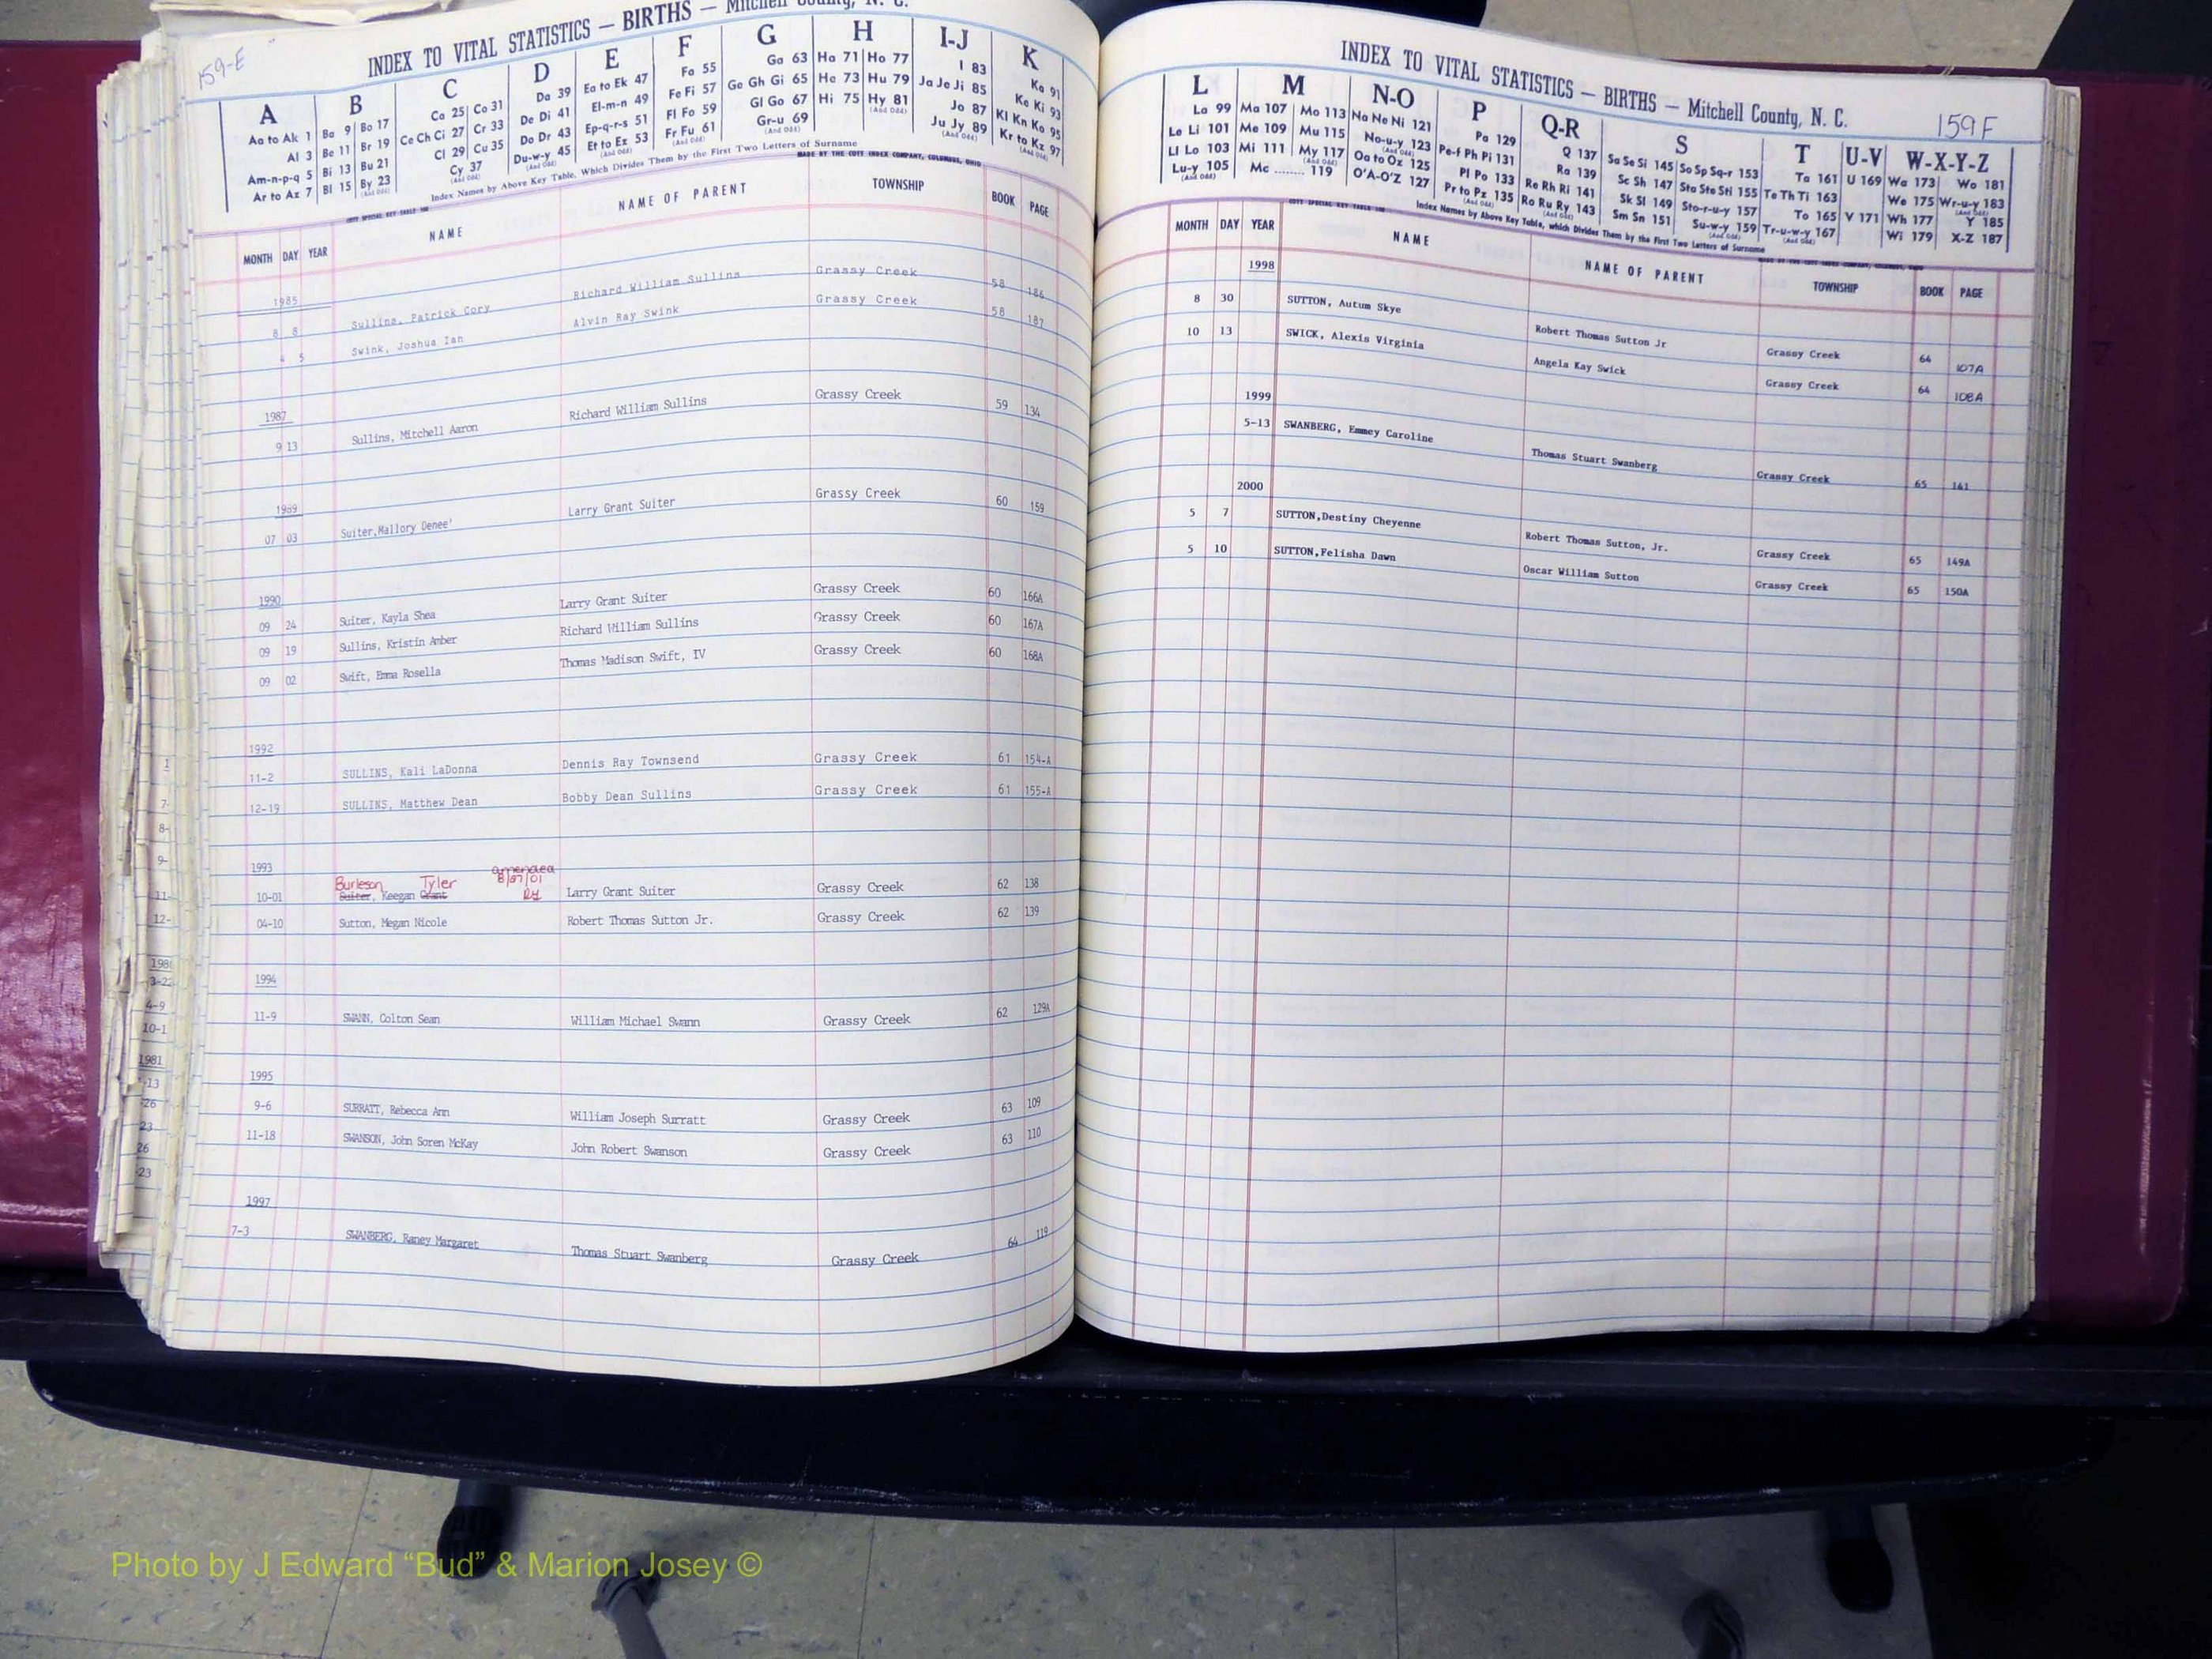 159-E
INDEX TO VITAL STATISTICS — BIRTHS — Mitchell County, N. C.
A B C D E F G H I-J K
Aa to Ak 1 Ba 9 Bo 17 Ca 25 Co 31 Da 39 Ea to Ek 47 Fa 55 Ga 63 Ha 71 Ho 77 I 83 Ka 91
Al 3 Be 11 Br 19 Ce Ch Ci 27 Cr 33 De Di 41 El-m-n 49 Fe Fi 57 Ge Gh Gi 65 He 73 Hu 79 Ja Je Ji 85 Ke Ki 93
Am-n-p-q 5 Bi 13 Bu 21 Cl 29 Cu 35 Do Dr 43 Ep-q-r-s 51 Fl Fo 59 Gl Go 67 Hi 75 Hy 81 Jo 87 Kl Kn Ko 95
Ar to Az 7 Bl 15 By 23 Cy 37 Du-w-y 45 Et to Ez 53 Fr Fu 61 Gr-u 69 Ju Jy 89 Kr to Kz 97
Index Names by Above Key Table, Which Divides Them by the First Two Letters of Surname
MADE BY THE COTT INDEX COMPANY, COLUMBUS, OHIO
MONTH DAY YEAR NAME NAME OF PARENT TOWNSHIP BOOK PAGE
1985
8 8 Sullins, Patrick Cory Richard William Sullins Grassy Creek 58 186
4 5 Swink, Joshua Ian Alvin Ray Swink Grassy Creek 58 187
1987
9 13 Sullins, Mitchell Aaron Richard William Sullins Grassy Creek 59 134
1989
07 03 Suiter,Mallory Denee' Larry Grant Suiter Grassy Creek 60 159
1990
09 24 Suiter, Kayla Shea Larry Grant Suiter Grassy Creek 60 166A
09 19 Sullins, Kristin Amber Richard William Sullins Grassy Creek 60 167A
09 02 Swift, Emma Rosella Thomas Madison Swift, IV Grassy Creek 60 168A
1992
11-2 SULLINS, Kali LaDonna Dennis Ray Townsend Grassy Creek 61 154-A
12-19 SULLINS, Matthew Dean Bobby Dean Sullins Grassy Creek 61 155-A
1993
Burleson Tyler amended
10-01 Suiter, Keegan Grant Larry Grant Suiter Grassy Creek 62 138
04-10 Sutton, Megan Nicole Robert Thomas Sutton Jr. Grassy Creek 62 139
1994
11-9 SWANN, Colton Sean William Michael Swann Grassy Creek 62 129A
1995
9-6 SURRATT, Rebecca Ann William Joseph Surratt Grassy Creek 63 109
11-18 SWANSON, John Soren McKay John Robert Swanson Grassy Creek 63 110
1997
7-3 SWANBERG, Raney Margaret Thomas Stuart Swanberg Grassy Creek 64 119
159F
INDEX TO VITAL STATISTICS — BIRTHS — Mitchell County, N. C.
L M N-O P Q-R S T U-V W-X-Y-Z
La 99 Ma 107 Mo 113 Na Ne Ni 121 Pa 129 Q 137 Sa Se Si 145 So Sp Sq-r 153 Ta 161 U 169 Wa 173 Wo 181
Le Li 101 Me 109 Mu 115 No-u-y 123 Pe-f Ph Pi 131 Ra 139 Sc Sh 147 Sta Ste Sti 155 Te Th Ti 163 We 175 Wr-u-y 183
Ll Lo 103 Mi 111 My 117 Oa to Oz 125 Pl Po 133 Re Rh Ri 141 Sk Sl 149 Sto-r-u-y 157 To 165 V 171 Wh 177 Y 185
Lu-y 105 Mc ........ 119 O'A-O'Z 127 Pr to Pz 135 Ro Ru Ry 143 Sm Sn 151 Su-w-y 159 Tr-u-w-y 167 Wi 179 X-Z 187
Index Names by Above Key Table, which Divides Them by the First Two Letters of Surname
MONTH DAY YEAR NAME NAME OF PARENT TOWNSHIP BOOK PAGE
1998
8 30 SUTTON, Autum Skye Robert Thomas Sutton Jr Grassy Creek 64 107A
10 13 SWICK, Alexis Virginia Angela Kay Swick Grassy Creek 64 108A
1999
5-13 SWANBERG, Emmey Caroline Thomas Stuart Swanberg Grassy Creek 65 141
2000
5 7 SUTTON,Destiny Cheyenne Robert Thomas Sutton, Jr. Grassy Creek 65 149A
5 10 SUTTON,Felisha Dawn Oscar William Sutton Grassy Creek 65 150A
Photo by J Edward “Bud” & Marion Josey ©